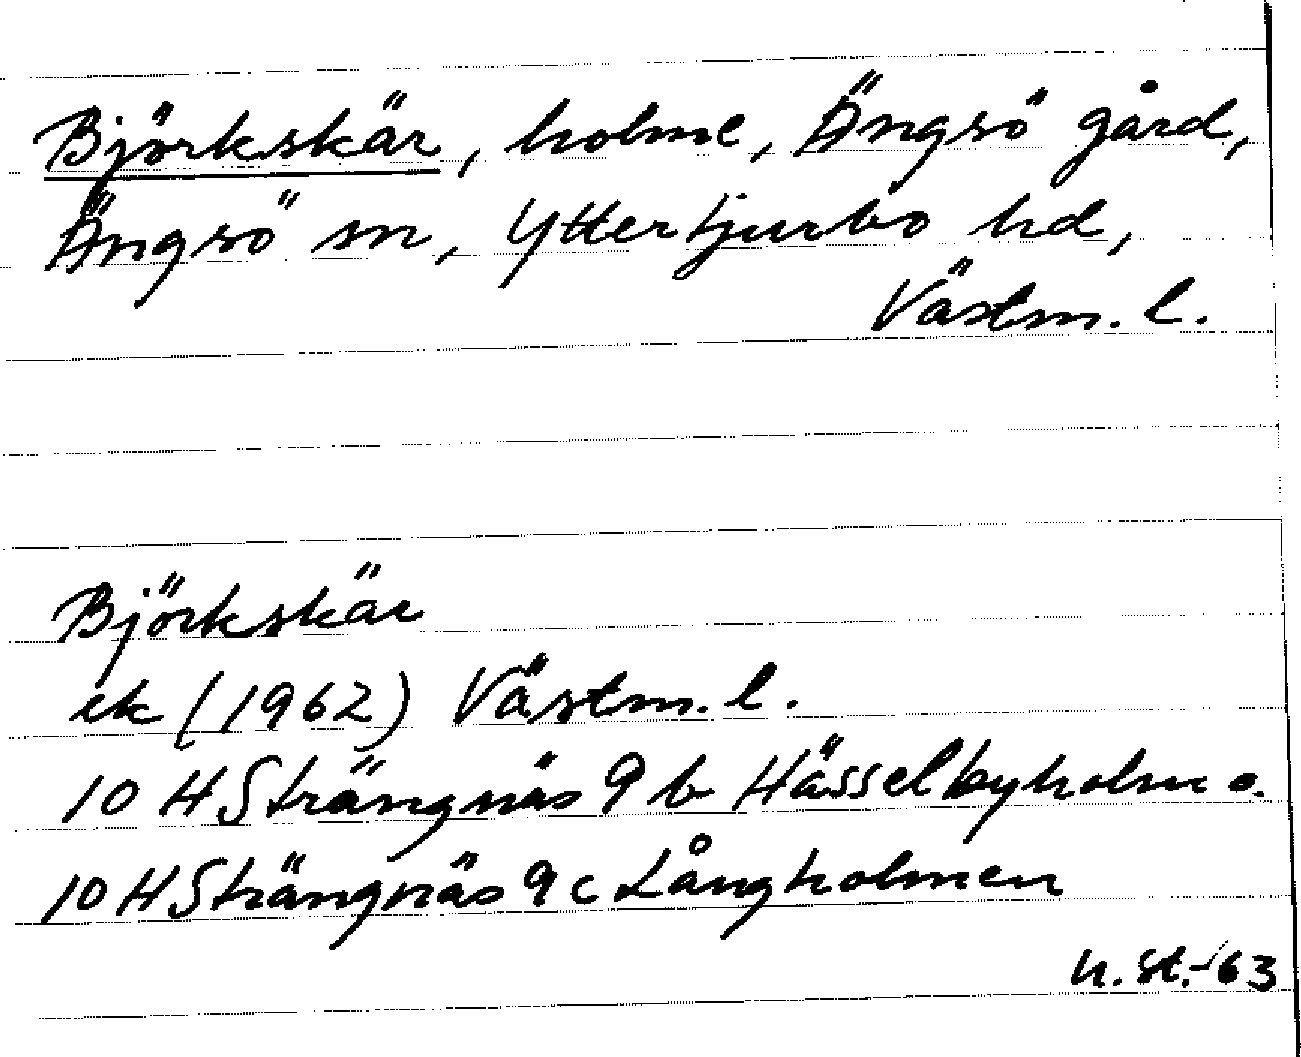 Björkskär, holme, Ängsö gård,
Ängsö sn, Yttertjurbo hd,
Västm. l.
Björkskär
ek (1962) Västm. l.
10 H Strängnäs 9 b Hässelbyholm o.
10 H Strängnäs 9 c Långholmen
U. St. -63